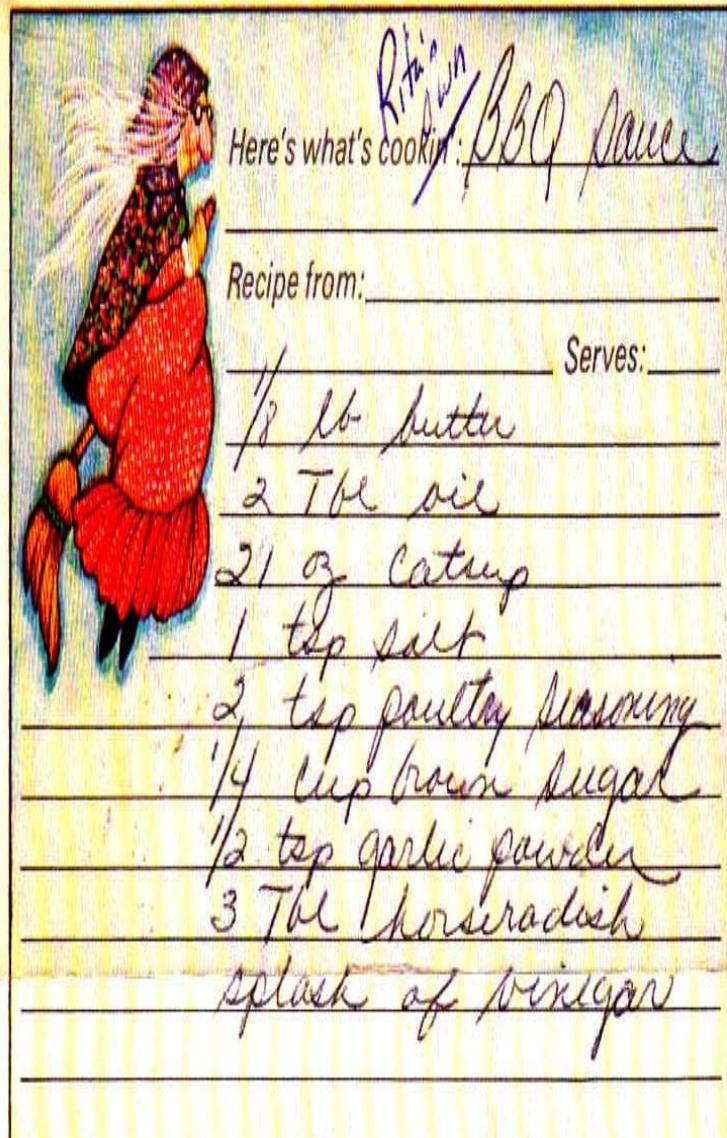 Rita's
own
Here's what's cookin': BBQ Sauce
Recipe from:
Serves:
1/8 lb butter
2 Tbl oil
21 oz catsup
1 tsp salt
2 tsp poultry seasoning
1/4 cup brown sugar
1/2 tsp garlic powder
3 Tbl horseradish
splash of vinegar